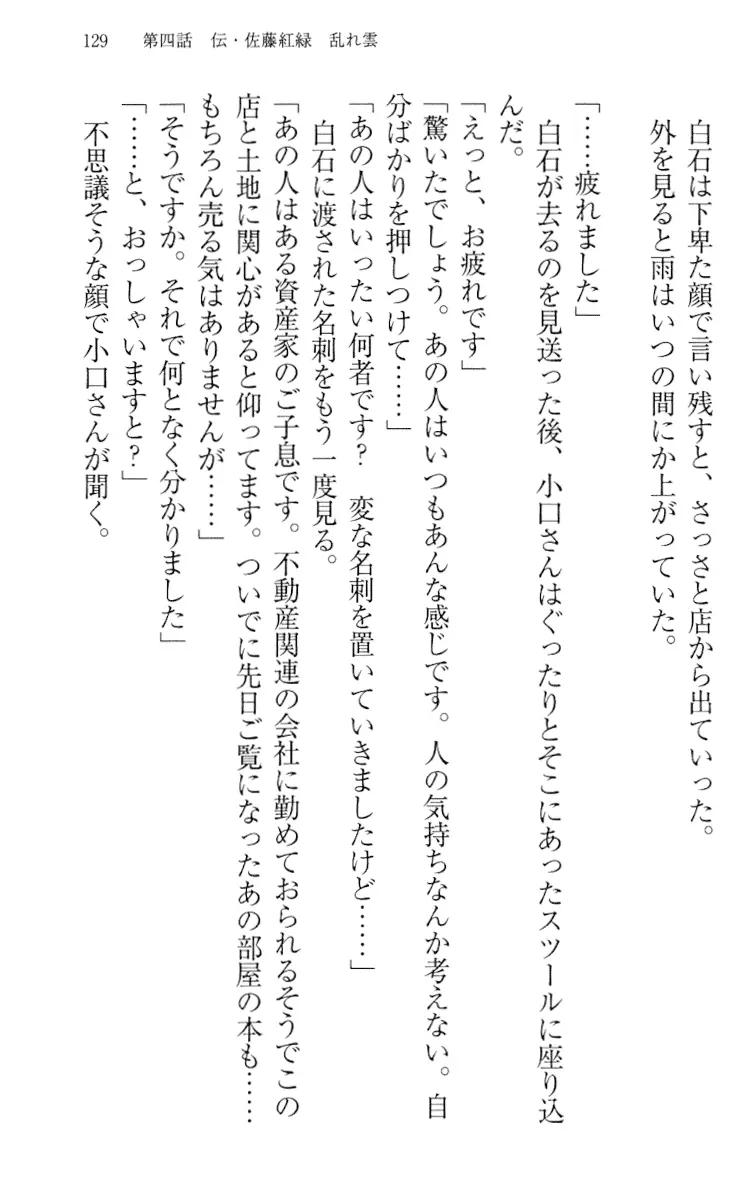 129　第四話　伝・佐藤紅緑　乱れ雲
白石は下卑た顔で言い残すと、さっさと店から出ていった。
外を見ると雨はいつの間にか上がっていた。
「……疲れました」
白石が去るのを見送った後、小口さんはぐったりとそこにあったスツールに座り込
んだ。
「えっと、お疲れです」
「驚いたでしょう。あの人はいつもあんな感じです。人の気持ちなんか考えない。自
分ばかりを押しつけて……」
「あの人はいったい何者です？　変な名刺を置いていきましたけど……」
白石に渡された名刺をもう一度見る。
「あの人はある資産家のご子息です。不動産関連の会社に勤めておられるそうでこの
店と土地に関心があると仰ってます。ついでに先日ご覧になったあの部屋の本も……
もちろん売る気はありませんが……」
「そうですか。それで何となく分かりました」
「……と、おっしゃいますと？」
不思議そうな顔で小口さんが聞く。